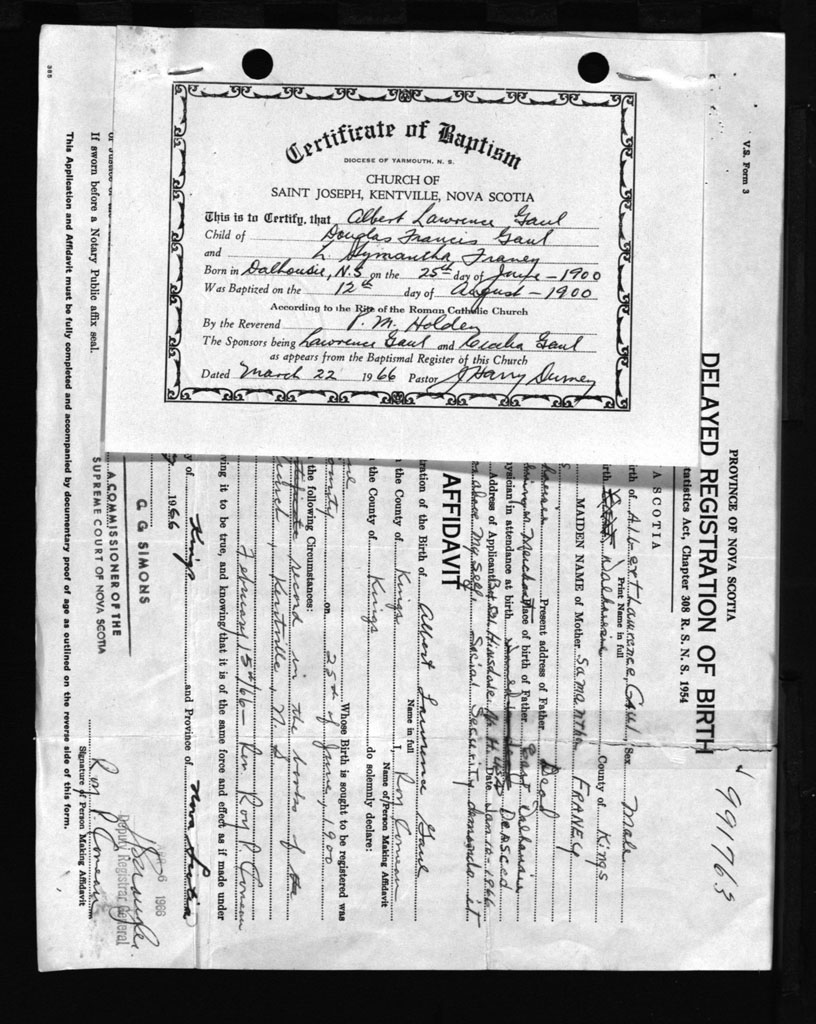 Certificate of Baptism
DIOCESE OF YARMOUTH, N. S.
CHURCH OF
SAINT JOSEPH, KENTVILLE, NOVA SCOTIA
This is to Certify, that Albert Lawrence Gaul
Child of Douglas Francis Gaul
and L Symantha Franey
Born in Dalhousie, N.S on the 25th day of June - 1900
Was Baptized on the 12th day of August - 1900
According to the Rite of the Roman Catholic Church
By the Reverend P. M. Holden
The Sponsors being Lawrence Gaul and Cecilia Gaul
as appears from the Baptismal Register of this Church
Dated March 22 1966 Pastor J Harry Durney
V.S. Form 3
991763
PROVINCE OF NOVA SCOTIA
DELAYED REGISTRATION OF BIRTH
tatistics Act, Chapter 308 R. S. N. S. 1954
A SCOTIA
irth of Albert Lawrence, Gaul, Sex Male
Print Name in full
irth Dalhousie County of Kings
MAIDEN NAME of Mother Samantha FRANEY
Present address of Father Dead
Place of birth of Father East Dalhousie
ysician in attendance at birth Deasced
Address of Applicant Hinsdale N.H. USA Date Jan. 12-1966
above My self Social Security demands it
AFFIDAVIT
tration of the Birth of Albert Lawrence Gaul
Name in full
the County of Kings I, Roy Comeau
Name of Person Making Affidavit
the County of Kings do solemnly declare:
Whose Birth is sought to be registered was
ounty on 25th of June, 1900
the following Circumstances:
record in the books of the
Kentville, N. S
February 15th/66 - Rev. Roy P. Comeau
ving it to be true, and knowing that it is of the same force and effect as if made under
y of Kings and Province of Nova Scotia
1966
G G SIMONS
A COMMISSIONER OF THE
SUPREME COURT OF NOVA SCOTIA
APR 6 1966
Deputy Registrar General
R P. Comeau
Signature of Person Making Affidavit
If sworn before a Notary Public affix seal.
This Application and Affidavit must be fully completed and accompanied by documentary proof of age as outlined on the reverse side of this form.